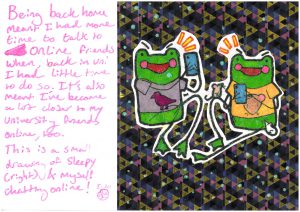 Being back home
meant I had more
time to talk to
Online friends
when, back in uni
I had little time
to do so. It's also
meant I've become
a lot closer to my
University friends
online, too.
This is a small
drawing of Sleepy
(right) & myself
chatting online!